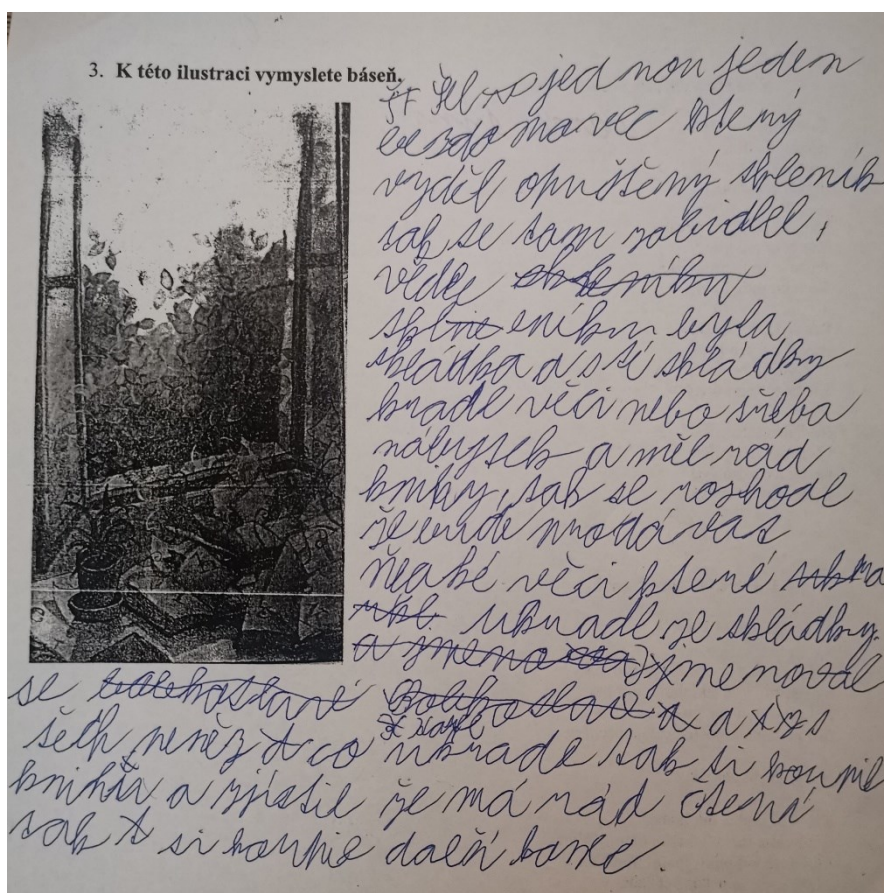 3. K této ilustraci vymyslete báseň.
jednou jeden
bezdomovec který
vyděl opuštěný skleník
tak se tam zabidlel,
vedle skleníku
skleníku byla
skládka a s té skládky
kradl věci nebo třeba
nábytek a měl rád
knihy, tak se rozhodl
že bude prodávat
ňeaké věci které má
ukradl ze skládky.
a jmenoval
se a z
těch peněz co ukradl tak si koupil
knihu a zjistil že má rád čtení
tak si koupil další konec